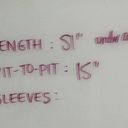 ENGTH : 51"
IT-TO-PIT : 15"
SLEEVES :